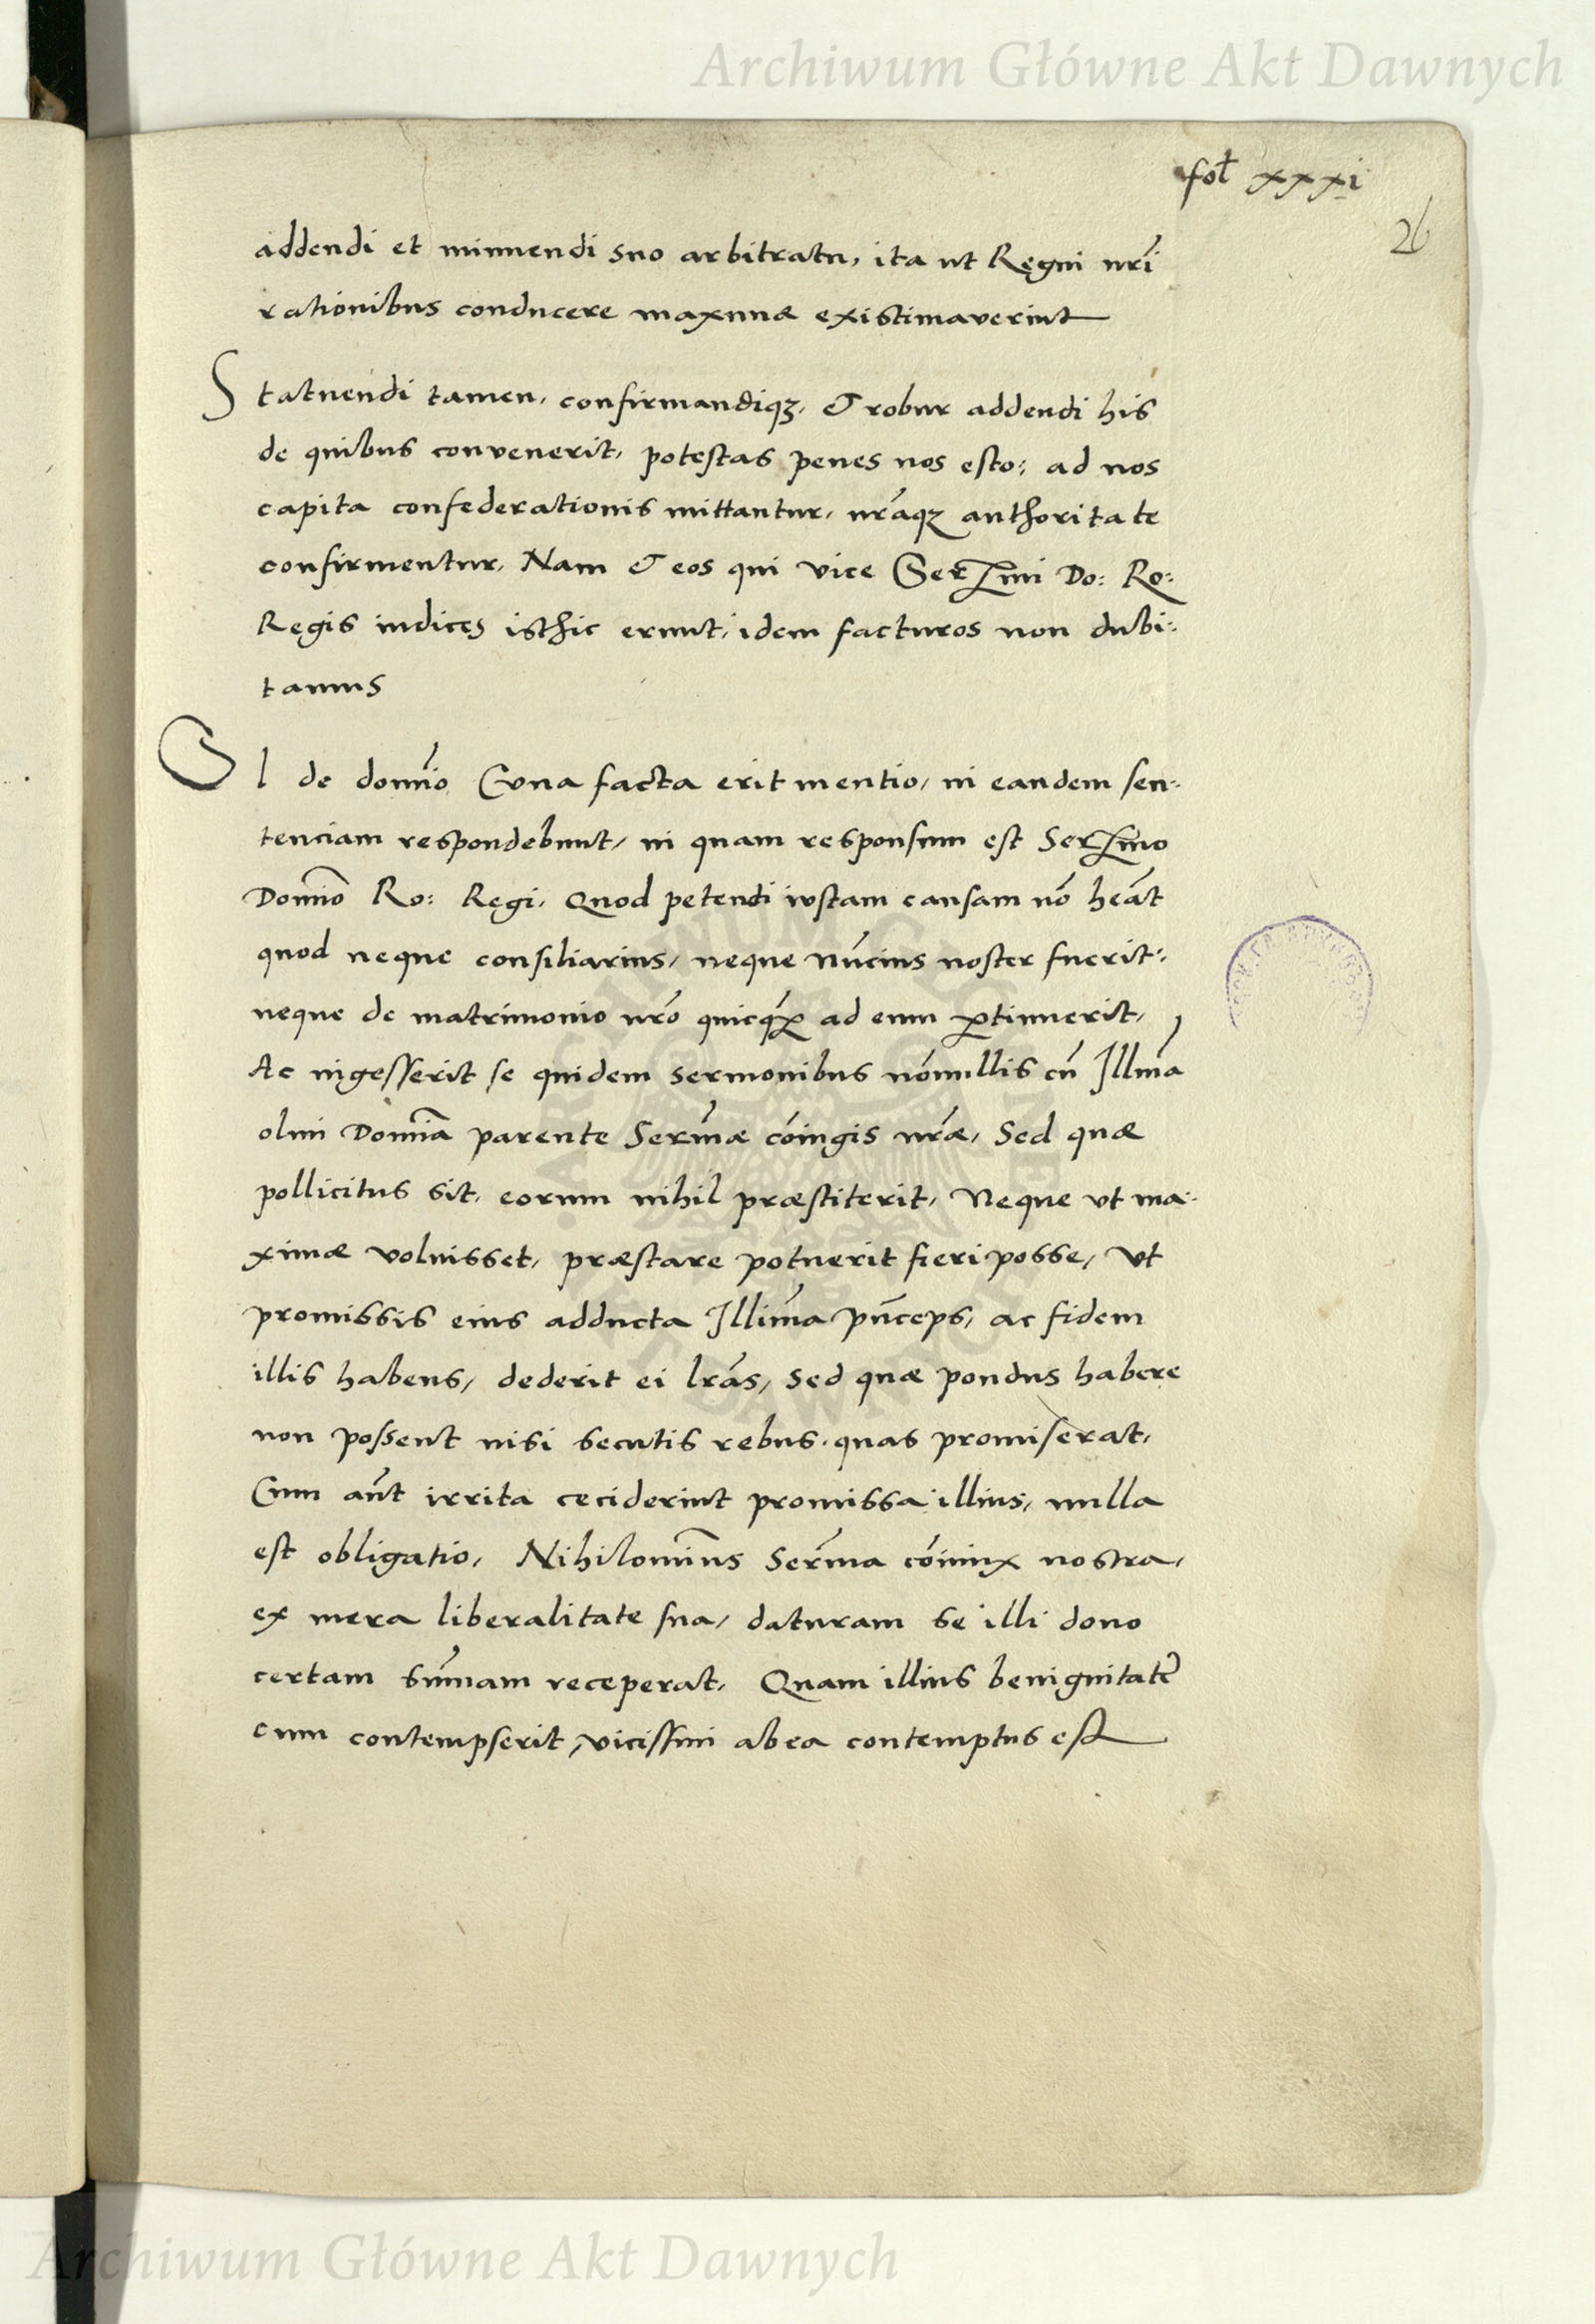 Archiwum Główne Akt Dawnych
fol xxxi
26
addendi et minuendi suo arbitratu, ita ut Regni nr̃i
rationibus conducere maxumæ existimaverint
Statuendi tamen, confirmandiqʒ, & robur addendi his
de quibus convenerit, potestas penes nos esto: ad nos
capita confederationis mittantur, nr̃aqʒ authoritate
confirmentur, Nam & eos qui vice Serᷤmi Do: Ro:
Regis iudices isthic erunt, idem facturos non dubi:
tamus
SI de domĩo Cvna facta erit mentio, in eandem sen:
tenciam respondebunt, in quam responsum est Serᷤmo
Domĩo Ro: Regi, Quod petendi iustam causam nõ heãt
quod neque consiliarius, neque nũcius noster fuerit:
neque de matrimonio nr̃o quicqꝫ̃ ad eum ꝑtinuerit,
Ac ingesserit se quidem sermonibus nõnullis cũ Illm̃a
olim Domĩa parente Serm̃æ cõiugis nr̃æ, Sed quæ
pollicitus sit, eorum nihil præstiterit, Neque ut ma:
ximæ voluisset, præstare potuerit fieri posse, Vt
promissis eius adducta Illim̃a pñceps, ac fidem
illis habens, dederit ei lrãs, Sed quæ pondus habere
non possent nisi secutis rebus, quas promiserat,
Cum aũt irrita ceciderint promissa illius, nulla
est obligatio, Nihilomĩus Ser̃ma cõiunx nostra,
ex mera liberalitate sua, daturam se illi dono
certam sum̃am receperat, Quam illius benignitatẽ
cum contempserit, vicissim ab ea contemptus est
Archiwum Główne Akt Dawnych